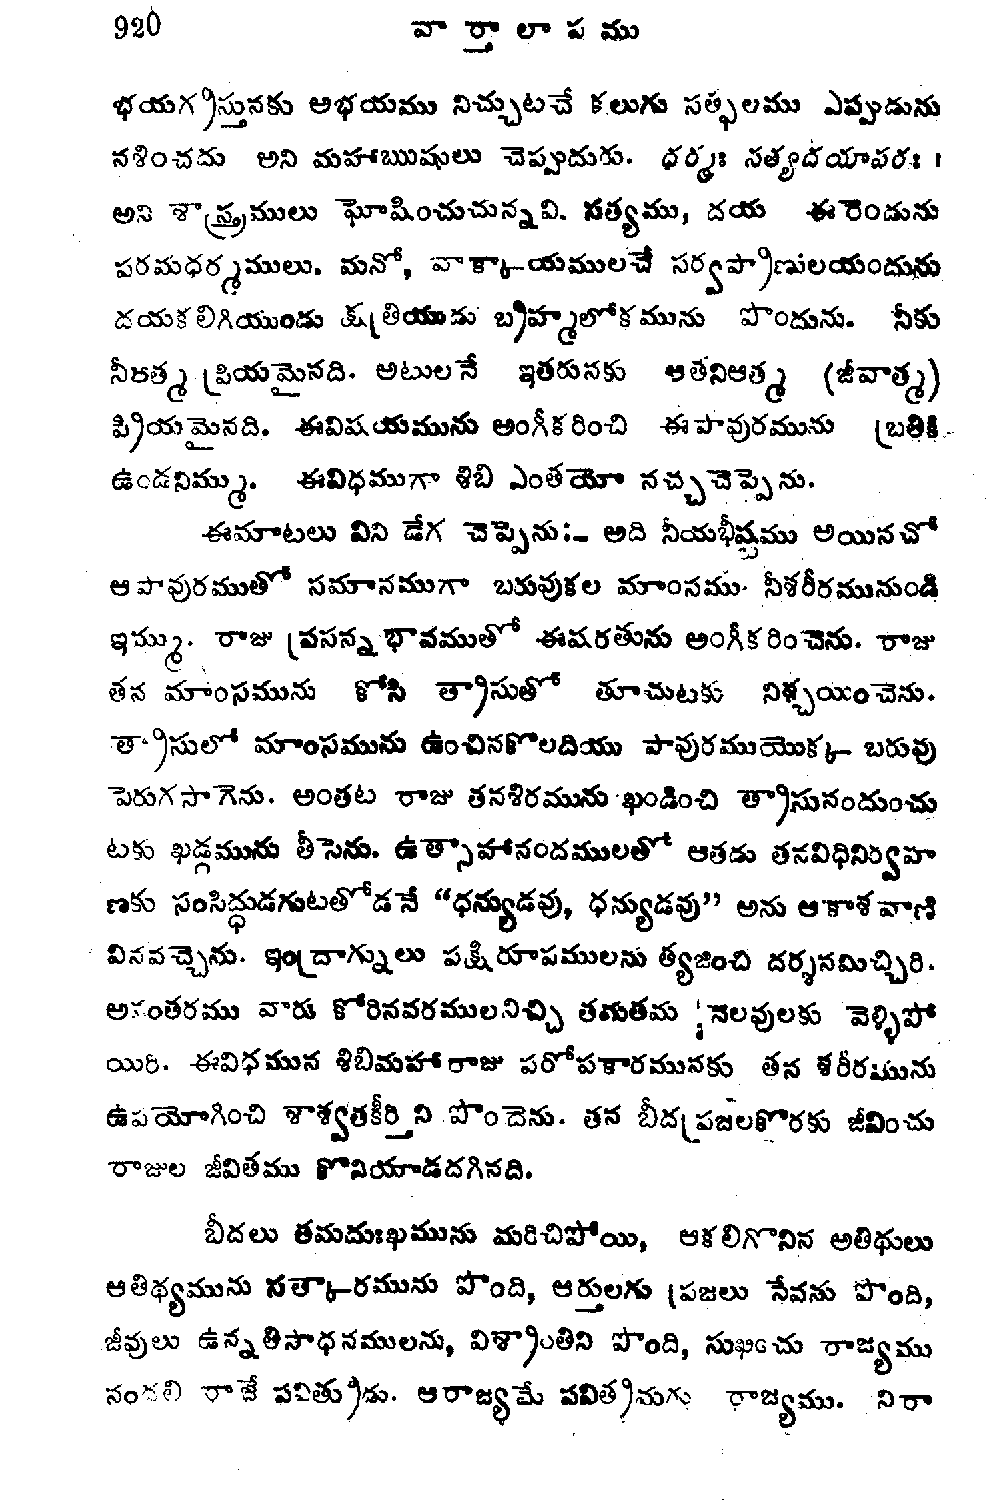 920 వార్తాలాపము
భయగ్రస్తునకు అభయము నిచ్చుటచే కలుగు సత్ఫలము ఎప్పుడును
నశించదు అని మహాఋషులు చెప్పుదురు. ధర్మః సత్యదయాపరః ।
అని శాస్త్రములు ఘోషించుచున్నవి. సత్యము, దయ ఈ రెండును
పరమధర్మములు. మనో, వాక్కాయములచే సర్వప్రాణులయందును
దయకలిగియుండు క్షత్రియుడు బ్రహ్మలోకమును పొందును. నీకు
నీఆత్మ ప్రియమైనది. అటులనే ఇతరునకు ఆతనిఆత్మ (జీవాత్మ)
ప్రియమైనది. ఈవిషయమును అంగీకరించి ఈపావురమును బ్రతికి
ఉండనిమ్ము. ఈవిధముగా శిబి ఎంతయో నచ్చచెప్పెను.
ఈమాటలు విని డేగ చెప్పెను:- అది నీయభీష్టము అయినచో
ఆపావురముతో సమానముగా బరువుకల మాంసము నీశరీరమునుండి
ఇమ్ము. రాజు ప్రసన్నభావముతో ఈషరతును అంగీకరించెను. రాజు
తన మాంసమును కోసి త్రాసుతో తూచుటకు నిశ్చయించెను.
త్రాసులో మాంసమును ఉంచినకొలదియు పావురముయొక్క బరువు
పెరుగసాగెను. అంతట రాజు తనశిరమును ఖండించి త్రాసునందుంచు
టకు ఖడ్గమును తీసెను. ఉత్సాహానందములతో ఆతడు తనవిధినిర్వహ
ణకు సంసిద్ధుడగుటతోడనే “ధన్యుడవు, ధన్యుడవు” అను ఆకాశవాణి
వినవచ్చెను. ఇంద్రాగ్నులు పక్షిరూపములను త్యజించి దర్శనమిచ్చిరి.
అనంతరము వారు కోరినవరములనిచ్చి తమతమ నెలవులకు వెళ్ళిపో
యిరి. ఈవిధమున శిబిమహారాజు పరోపకారమునకు తన శరీరమును
ఉపయోగించి శాశ్వతకీర్తిని పొందెను. తన బీదప్రజలకొరకు జీవించు
రాజుల జీవితము కొనియాడదగినది.
బీదలు తమదుఃఖమును మరిచిపోయి, ఆకలిగొనిన అతిథులు
ఆతిథ్యమును సత్కారమును పొంది, ఆర్తులగు ప్రజలు సేవను పొంది,
జీవులు ఉన్నతిసాధనములను, విశ్రాంతిని పొంది, సుఖించు రాజ్యము
నందలి రాజే పవిత్రుడు. ఆరాజ్యమే పవిత్రమగు రాజ్యము. నిరా